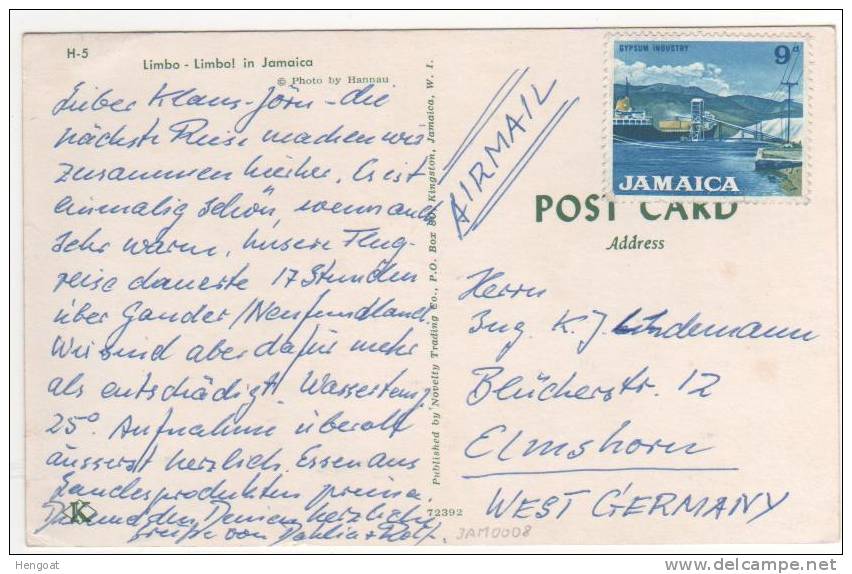 H-5
Limbo - Limbo! in Jamaica
© Photo by Hannau
Lieber Klaus-Jörn - die
nächste Reise machen wir
zusammen hierher. Es ist
einmalig schön, wenn auch
sehr warm. Unsere Flug-
reise dauerte 17 Stunden
über Gander/Neufundland.
Wir sind aber dafür mehr
als entschädigt. Wassertemp.
25° Aufnahme überall
äusserst herzlich. Essen aus
Landesprodukten prima.
Dir und den Deinen herzliche
Grüße von Dahlia + Rolf.
K
Published by Novelty Trading Co., P.O. Box 80, Kingston, Jamaica, W. I.
72392
JAM0008
AIRMAIL
GYPSUM INDUSTRY
9d
JAMAICA
POST CARD
Address
Herrn
Ing. K. J. Lindemann
Blücherstr. 12
Elmshorn
WEST GERMANY
Hengoat
delcampe.net